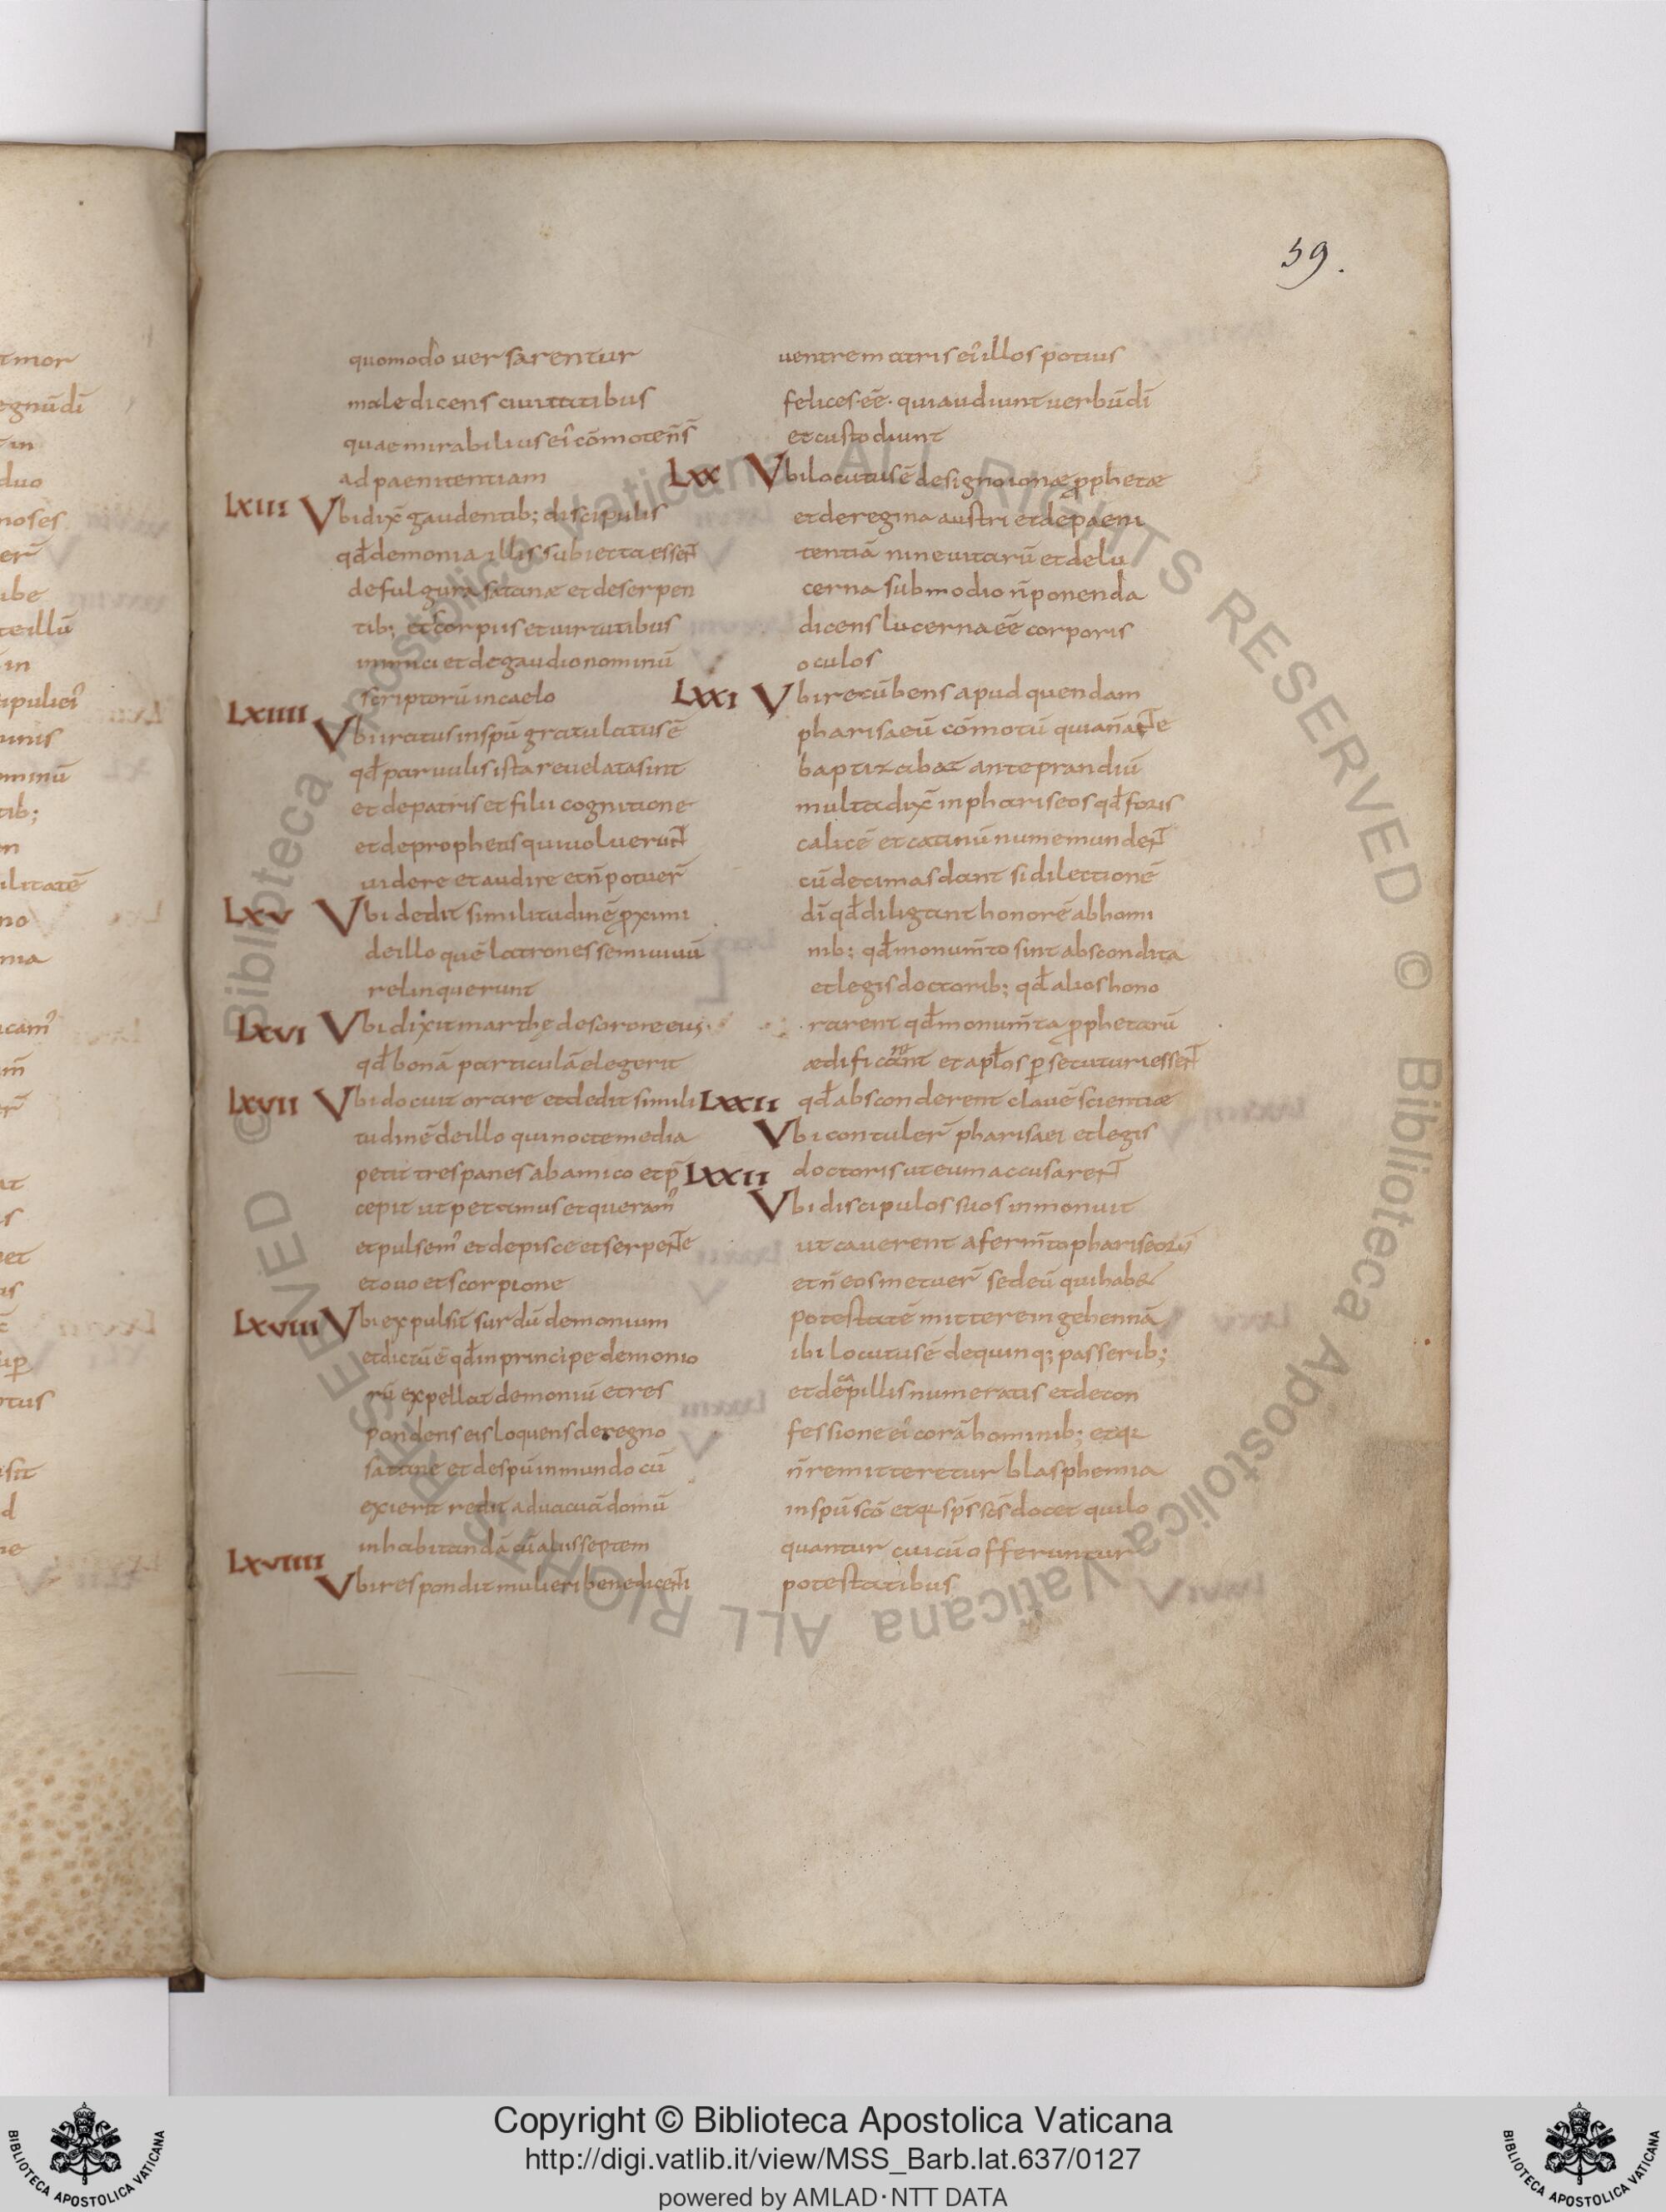 59.
quomodo uersarentur
maledicens ciuitatibus
quae mirabilius ei᾽ cōmoteñs̄
ad paenitentiam
LXIII Vbi dix̄ gaudentib; discipulis
qđ demonia illis subiecta essen̄t
de fulgura satanæ et de serpen
tib; et scorpiis et uirtutibus
inimici et de gaudio nominū
scriptorū in caelo
LXIIII
Vbi iratus in spū gratulatus ē
qđ paruulis ista reuelata sint
et de patris et filii cognitione
et de prophetis qui uoluerun̄t
uidere et audire et n̄ potuer̄
LXV Vbi dedit similitudinē ꝓximi
de illo quē latrones semiuiuū
relinquerunt
LXVI Vbi dixit marthę de sorore eius
qđ bonā particulā elegerit
LXVII Vbi docuit orare et dedit simili
tudinē de illo qui nocte media
petit tres panes ab amico et p̄
cepit ut petamus et queram᾽
et pulsem᾽ et de pisce et serpente
et ouo et scorpione
LXVIII Vbi expulsit surdū demonium
et dictū ē qđ in principe demonio
rū expellat demoniū et res
pondens eis loquens de regno
satane et de spū inmundo cū
exierit redit ad uacuā domū
inhabitandā cū aliis septem
LXVIIII
Vbi respondit mulieri benedicenti
uentre matris ei᾽ illos potius
felices·ēē· qui audiunt uerbū dī
et custodiunt
LXX Vbi locutus ē de signo ionæ ꝓphetæ
et de regina austri et de paeni
tentiā nineuitarū et de lu
cerna sub modio n̄ ponenda
dicens lucerna ēē corporis
oculos
LXXI Vbi recūbens apud quendam
pharisaeū cōmotū quia n̄ ante
baptizabat ante prandiū
multa dix̄ in phariseos qđ foris
calicē et catinū nume munden̄t
cū decimas dant si dilectionē
dī qđ diligant honorē ab homi
nib; qđ monum̄to sint abscondita
et legis doctorib; qđ alios hono
rarent qđ monum̄ta ꝓphetarū
ædificant et apłos ꝑsecuturi essen̄t
LXXII qđ absconderent clauē scientiæ
Vbi contuler̄ pharisaei et legis
LXXII doctoris ut eum accusaren̄t
Vbi discipulos suos inmonuit
ut cauerent a ferm̄to phariseorū
et n̄ eos metuer̄ sed eū qui habet
potestatē mittere in gehennā
ibi locutus ē de quinq; passerib;
et de capillis numeratis et de con
fessione ei᾽ corā hominib; et q̄
n̄ remitteretur blasphemia
in spū scō et q̄ sp̄s sc̄s docet qui lo
quantur cui cū offeruntur
potestatibus
Copyright © Biblioteca Apostolica Vaticana
http://digi.vatlib.it/view/MSS_Barb.lat.637/0127
powered by AMLAD·NTT DATA